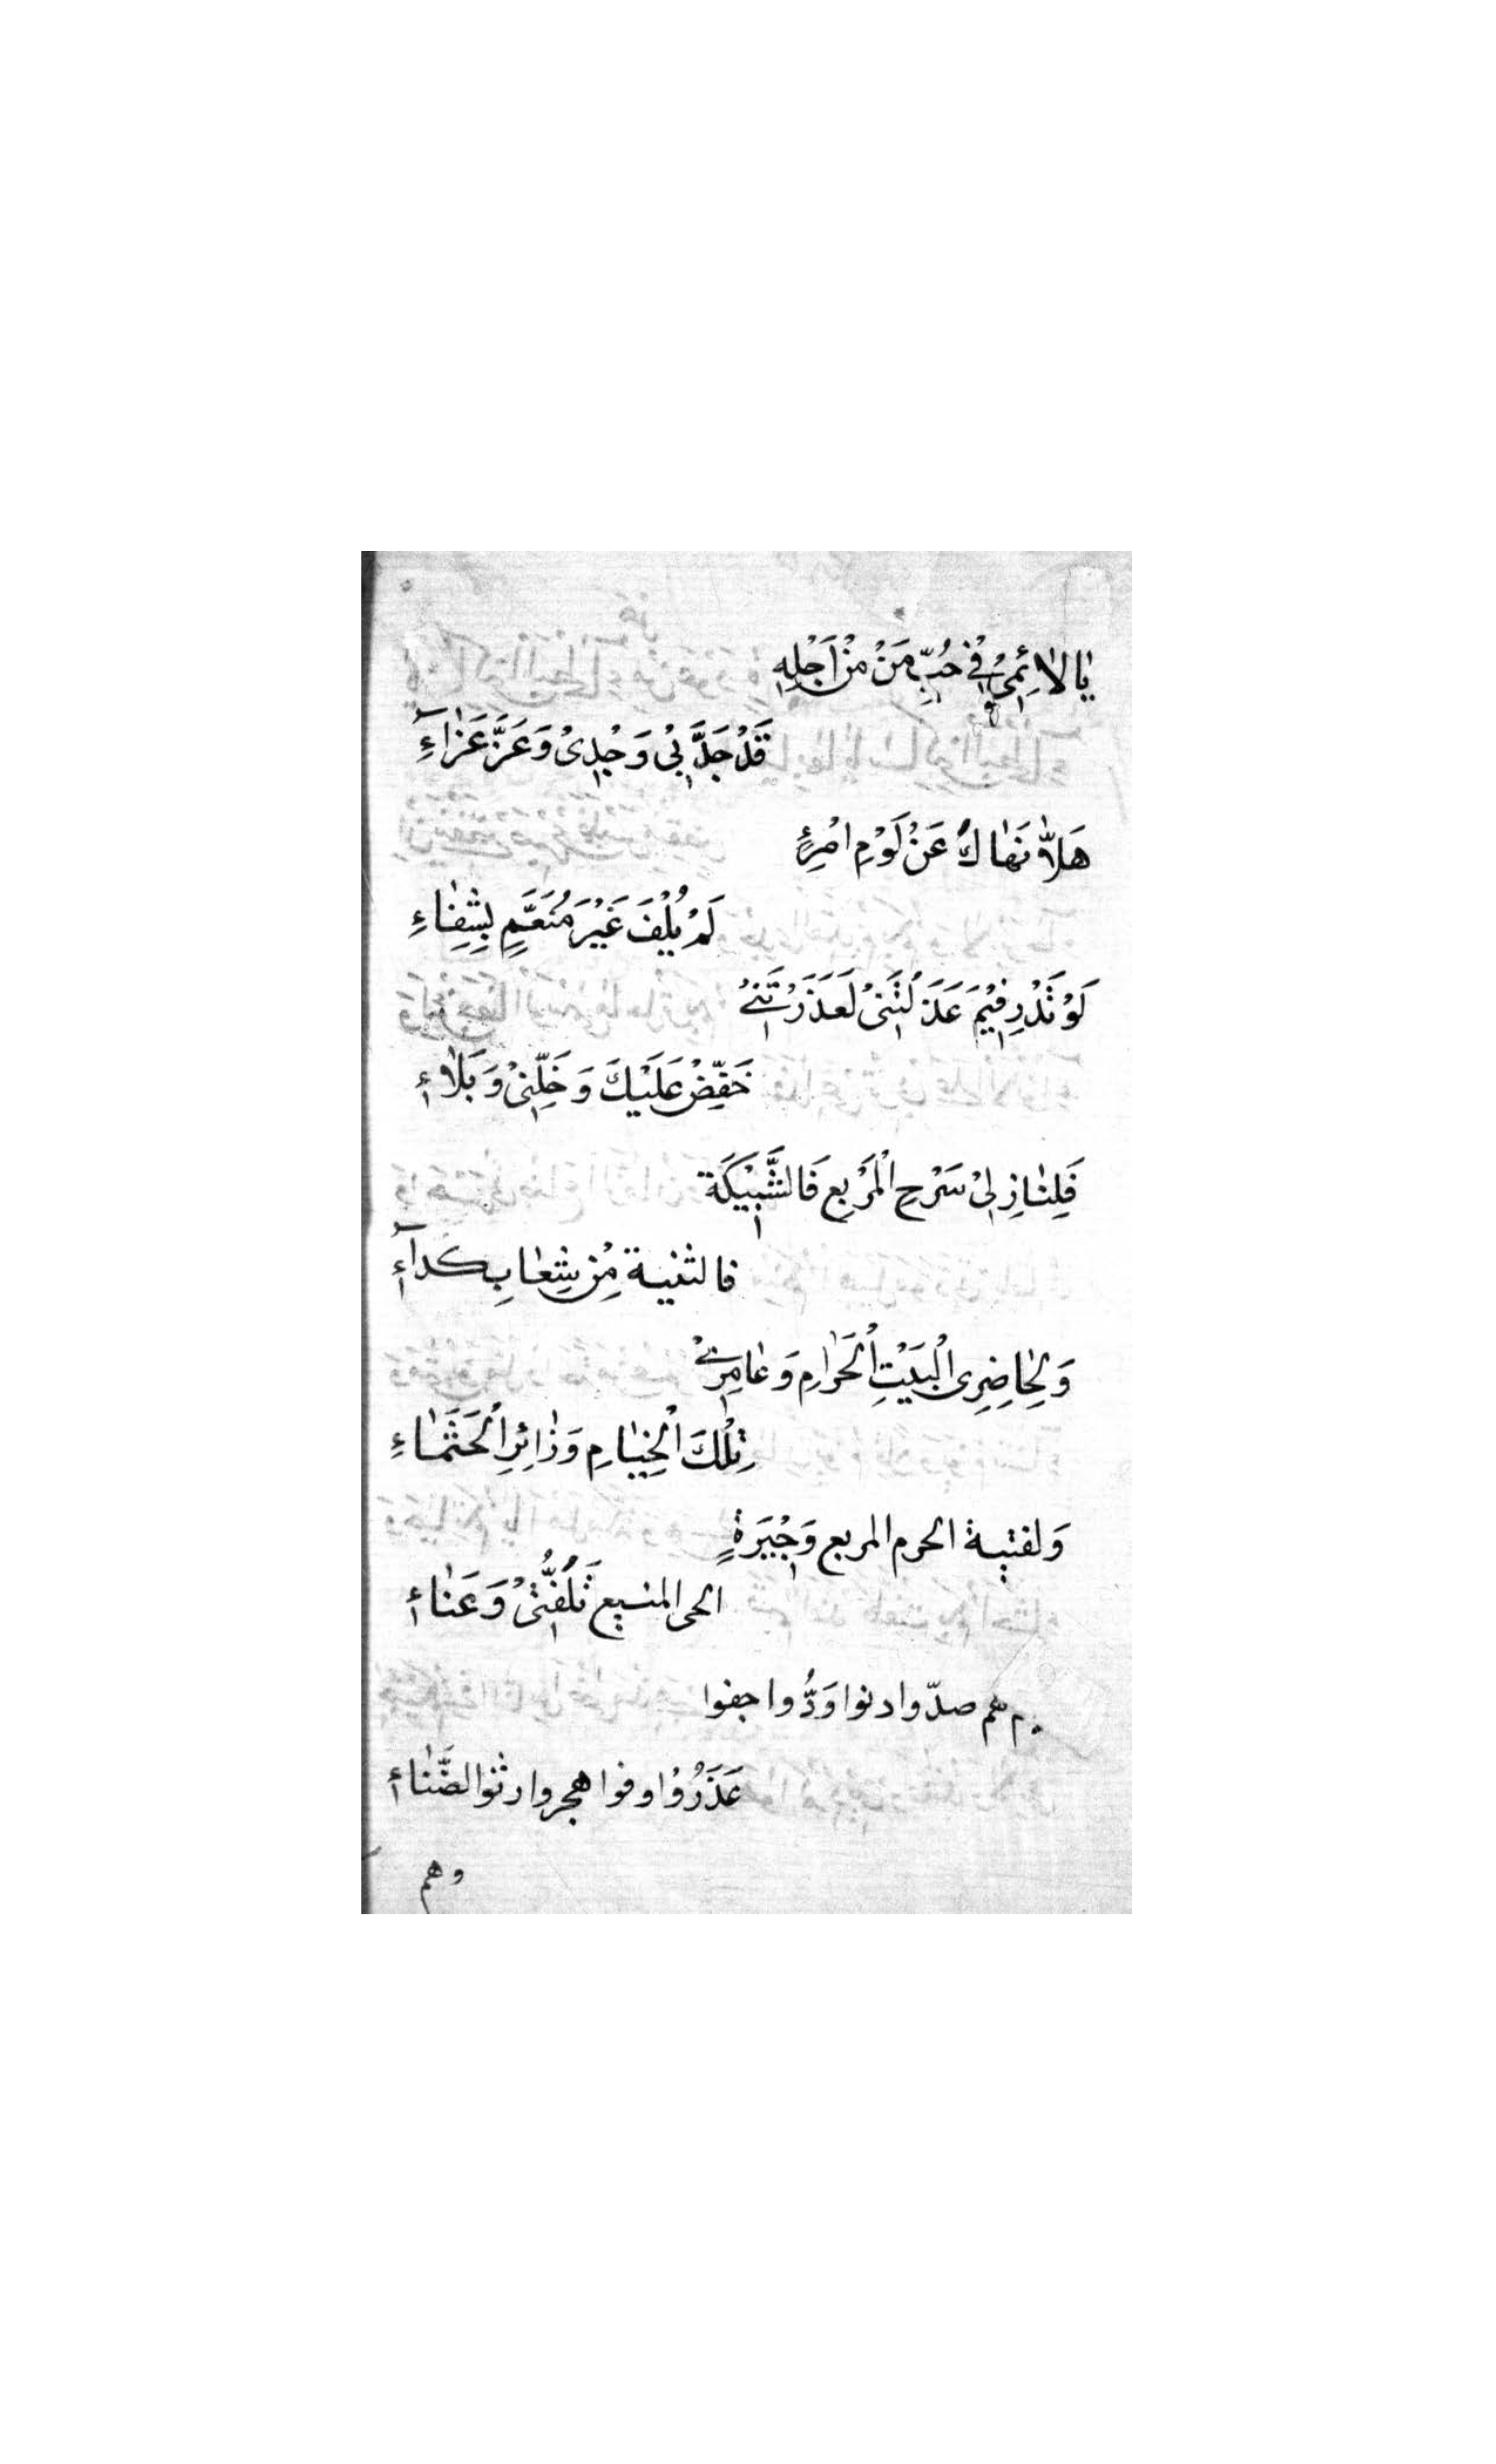 يَا لَائِمِيْ فِيْ حُبِّ مَنْ مِنْ اَجْلِهِ
قَدْ جَدَّ بِيْ وَجْدِيْ وَعَزَّ عَزَآءِ
هَلَّا نَهَاكَ عَنْ لَوْمِ امْرِئٍ
لَمْ يُلْفَ غَيْرَ مُنَعَّمٍ بِشِفَاءِ
لَوْ تَدْرِ فِيْمَ عَذَلْتَنِيْ لَعَذَرْتَنِيْ
خَفِّضْ عَلَيْكَ وَخَلِّنِيْ وَبَلَاءِ
فَلِنَازِلِيْ سَرْحِ الْمَرْبِعِ فَالشُّبَيْكَة
فالثنية مِنْ شِعَابِ كدآءِ
وَلِحَاضِرِى الْبَيْتِ الْحَرَامِ وَعَامِرِيْ
تِلْكَ الْخِيَامِ وَزَائِرِ الْحَثْمَاءِ
وَلفتية الحرم المربع وَجِيْرَةٍ
الحى المنيع تَلَفُّتِيْ وَعَنَاءِ
هم صدّوا دنوا وَدُّوا جفوا
عَذَرُوْا وفوا هجروا رثوا لضَّنَاءِ
وهم